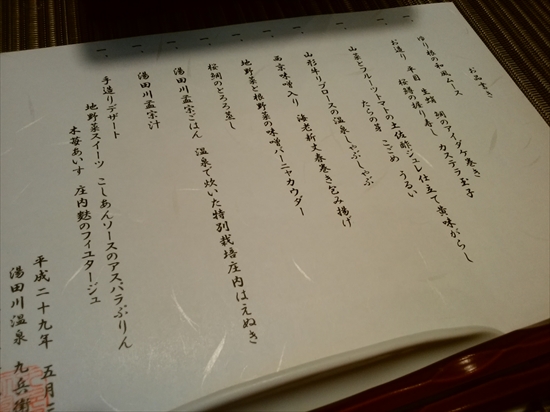 お品書き
一、ゆり根の和風ムース 鯛のアイダケ巻き カステラ玉子
一、お造り 平目 生蛸 桜鱒の握り寿し
一、山菜とフルーツトマトの土佐酢ジュレ仕立て黄味がらし
たらの芽 こごめ うるい
一、山形牛リブロースの温泉しゃぶしゃぶ
一、西京味噌入り 海老新丈春巻き包み揚げ
一、地野菜と根野菜の味噌バーニャカウダー
一、桜鯛のとろろ蒸し
一、湯田川孟宗ごはん 温泉で炊いた特別栽培庄内はえぬき
一、湯田川孟宗汁
一、手造りデザート
地野菜スイーツ こしあんソースのアスパラぷりん
木苺あいす 庄内麩のフィユタージュ
平成二十九年 五月
湯田川温泉 九兵衛